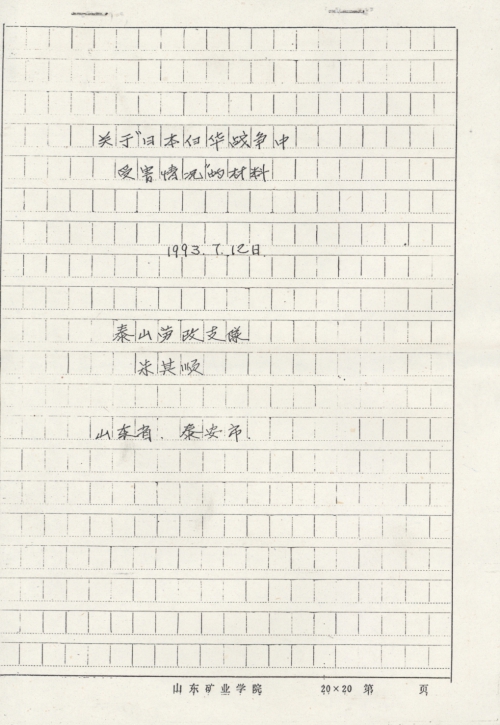 关于"日本侵华战争中
受害情况"的材料
1993.7.12日.
泰山劳改支队
朱其顺
山东省.泰安市.
山东矿业学院 20×20 第 页